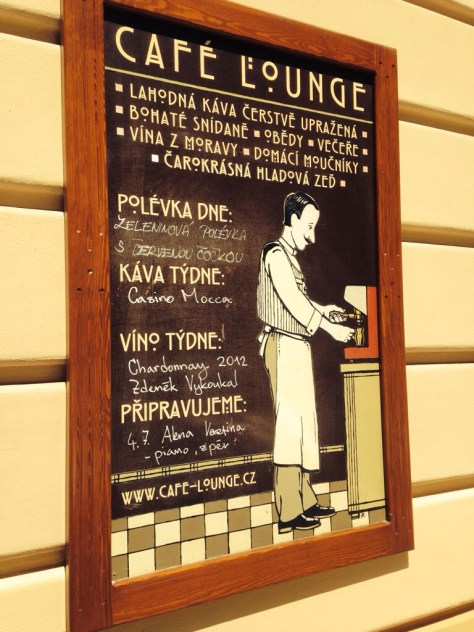 CAFÉ LOUNGE
LAHODNÁ KÁVA ČERSTVĚ UPRAŽENÁ
BOHATÉ SNÍDANĚ ▪ OBĚDY ▪ VEČEŘE
VÍNA Z MORAVY ▪ DOMÁCÍ MOUČNÍKY
ČAROKRÁSNÁ HLADOVÁ ZEĎ
POLÉVKA DNE:
ZELENINOVÁ POLÉVKA
S ČERVENOU ČOČKOU
KÁVA TÝDNE:
Casino Mocca
VÍNO TÝDNE:
Chardonnay 2012
Zdeněk Vykoukal
PŘIPRAVUJEME:
4.7.
- piano, zpěv
WWW.CAFE-LOUNGE.CZ